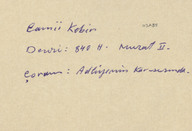 Camii Kebir
Devri: 840 H. Murat II.
Çorum: Adliyenin karşısında.